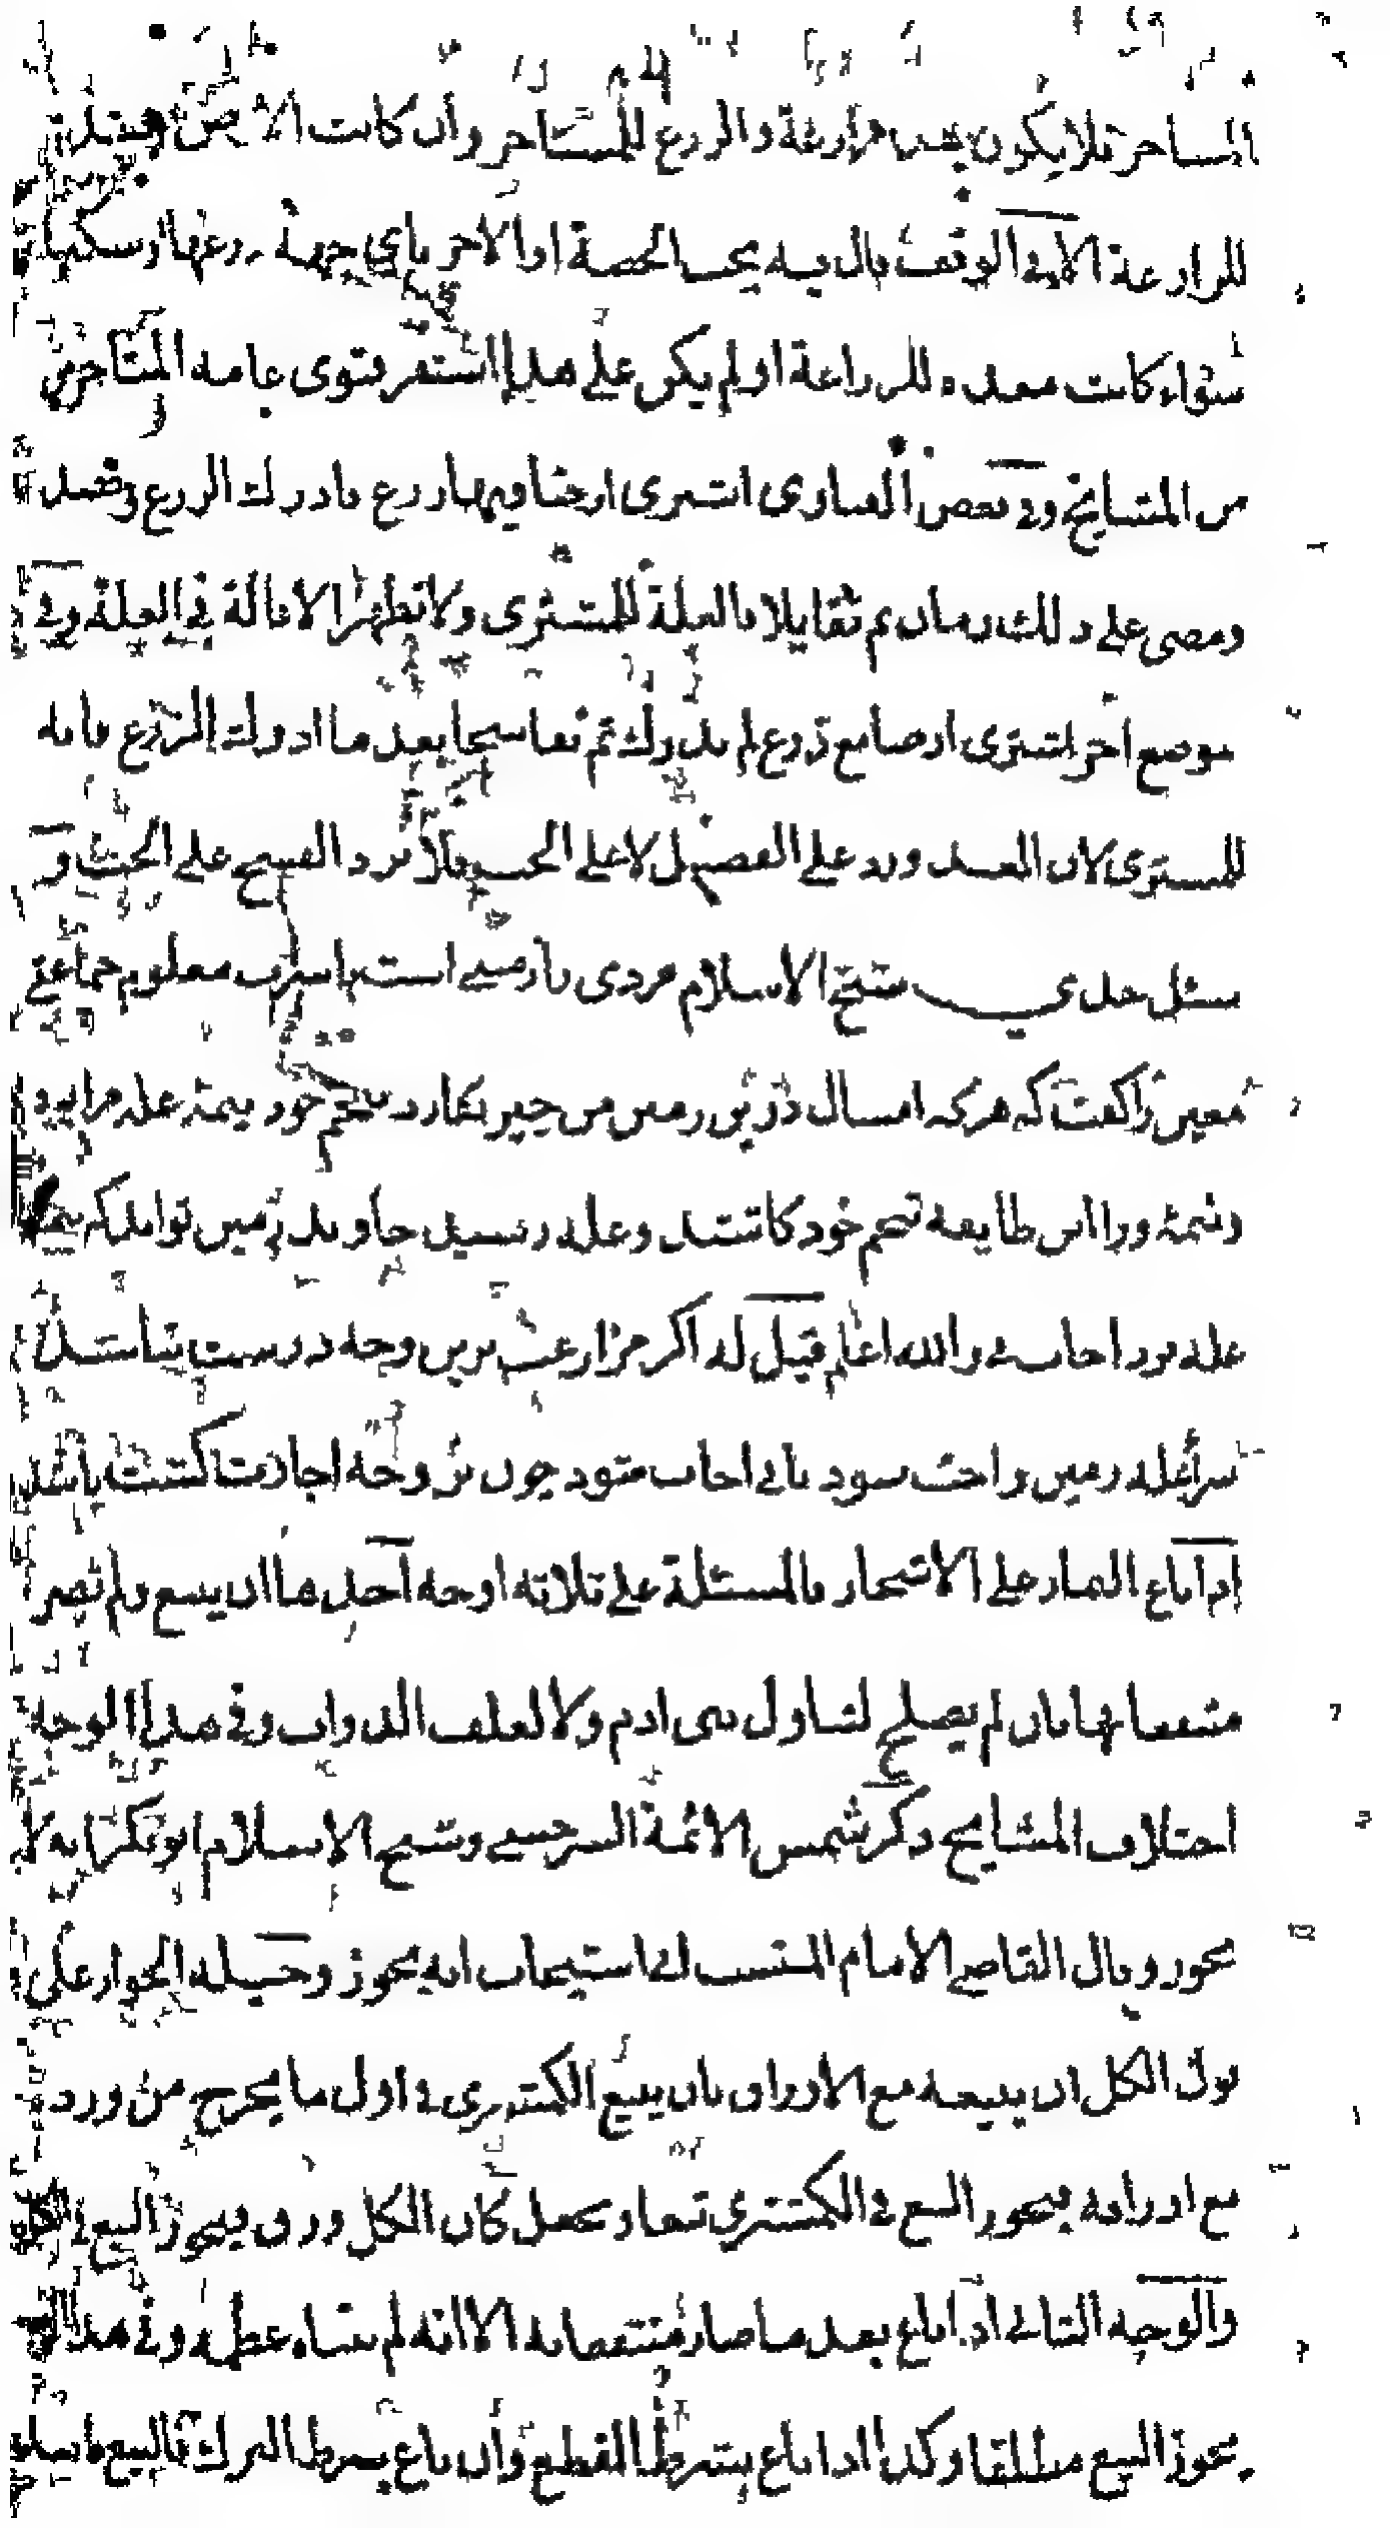 المستاجرة فلا يكون هذا مزارعة والزرع للمستاجر وان كانت الارض معدة
للزراعة الا في الوقف فان فيه يجب الحصة او الاجر باي جهة زرعها او سكنها
سواء كانت معدة للزراعة او لم يكن على هذا استقر فتوى عامة المتاخرين
من المشايخ وفي بعض الفتاوى اشترى ارضا وفيها زرع فادرك الزرع وحصد
ومضى على ذلك زمان ثم تقايلا فالغلة للمشتري ولا تظهر الاقالة في الغلة وفي
موضع اخر اشترى ارضا مع زرع لم يدرك ثم تفاسخا بعد ما ادرك الزرع فانه
للمشتري لان العقد ورد على الفصيل لا على الحب فلا يرد الفسخ على الحب و
سئل جدي شيخ الاسلام مردى با زمينے است با شرب معلوم جماعتے
معين را كفت كه هر كه امسال در ين زمين من چيز بكارد بتخم خود نيمهٔ غله مرا بود و
ونيمهٔ ورا اين طايفه تخم خود كاشتند وغله رسيد خداوند زمين تواند كه نيمهٔ
غله برد اجاب نے والله اعلم قيل له اكر مزارعت برين وجه درست نباشد
برا غله زمين واجب شود يا نے اجاب شود چون برين وجه اجازت كشت باشد
اذا باع الثمار على الاشجار فالمسئلة على ثلاثة اوجه احدها ان يبيع ولم تصر
منتفعا بها بان لم يصلح لتناول بني ادم ولا لعلف الدواب وفي هذا الوجه
اختلاف المشايخ ذكر شمس الائمة السرخسي وشيخ الاسلام ابو بكر انه لا
يجوز وقال القاضي الامام المنتسب الى اسبيجاب انه يجوز وحيلة الجواز على
قول الكل ان يبيعه مع الاوراق بان يبيع الكمثرى في اول ما يخرج من ورد
مع اوراقه فيجوز البيع في الكمثرى تبعا ويجعل كان الكل ورق فيجوز البيع في الكل
والوجه الثاني اذا باع بعد ما صار منتفعا به الا انه لم يتناه عظمه وفي هذا الوجه
يجوز البيع مطلقا وكذا اذا باع بشرط القطع وان باع بشرط الترك فالبيع فاسد